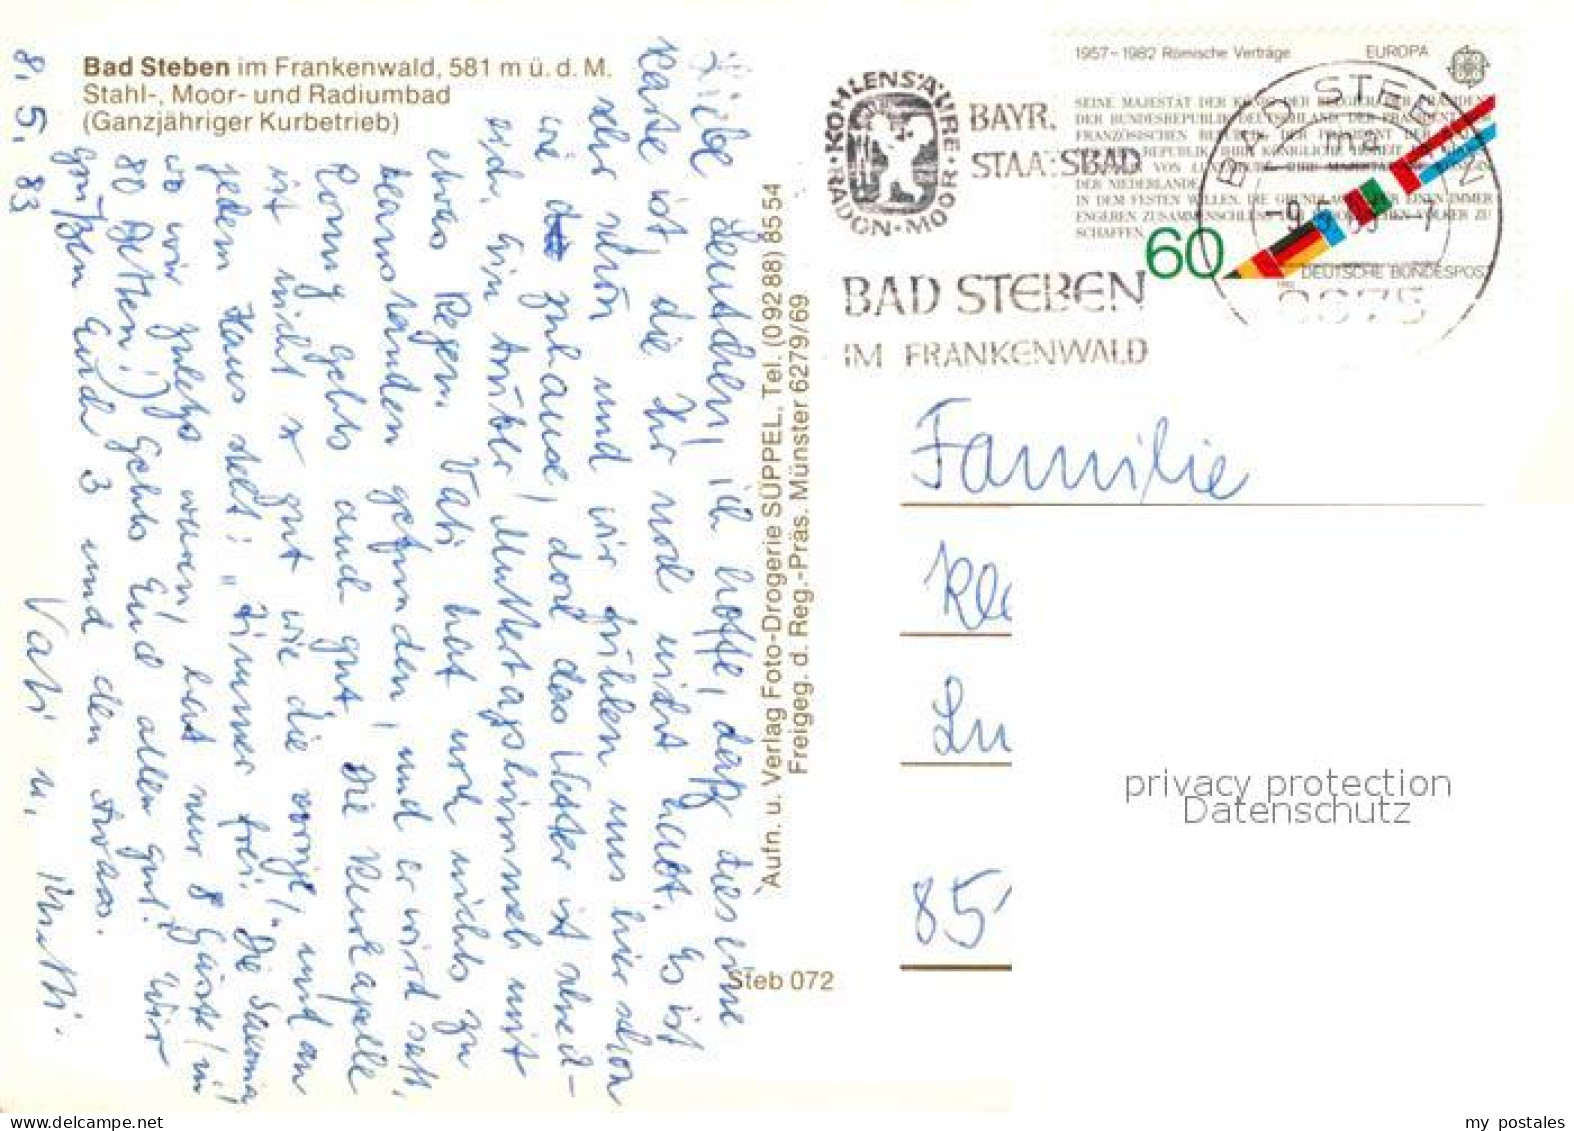 Bad Steben im Frankenwald, 581 m ü. d. M.
Stahl-, Moor- und Radiumbad
(Ganzjähriger Kurbetrieb)
8.5.83
Liebe Leutchen, ich hoffe, daß diese eine
Karte ist, die Ihr noch nicht habt. Es ist
sehr schön und wir fühlen uns hier schon
wie zuhause, doch das Wetter ist schei-
eich. Ein trüber Muttertagshimmel mit
etwas Regen. Vati hat noch nichts zu
beanstanden gefunden, und er wird satt.
Romy gehts auch gut. Die Kurkapelle
ist nicht so gut wie die vorige, und an
jedem Haus steht: "Zimmer frei." Die
wo wir zuletzt waren, hat nur 8 Gäste (im
80 Betten!) Gehts Euch allen gut? Wir
grüßen Euch 3 und den
Vati u. Mutti.
Aufn. u. Verlag Foto-Drogerie SÜPPEL, Tel. (0 92 88) 85 54
Freigeg. d. Reg.-Präs. Münster 6279/69
Steb 072
RADON · KOHLENSÄURE · MOOR
BAYR.
STAATSBAD
BAD STEBEN
IM FRANKENWALD
1957-1982 Römische Verträge
EUROPA
SEINE MAJESTÄT DER KÖNIG DER BELGIER, DER PRÄSIDENT
DER BUNDESREPUBLIK DEUTSCHLAND, DER PRÄSIDENT
FRANZÖSISCHEN REPUBLIK, DER PRÄSIDENT DER
REPUBLIK, IHRE KÖNIGLICHE HOHEIT DIE
VON MAJESTÄT
DER NIEDERLANDE
IN DEM FESTEN WILLEN, DIE GRUNDLAGEN EINEN IMMER
ENGEREN ZUSAMMENSCHLUSS DER EUROPÄISCHEN VÖLKER ZU
SCHAFFEN
60
DEUTSCHE BUNDESPOST
1982
BAD STEBEN
8675
Familie
85
privacy protection
Datenschutz
my postales